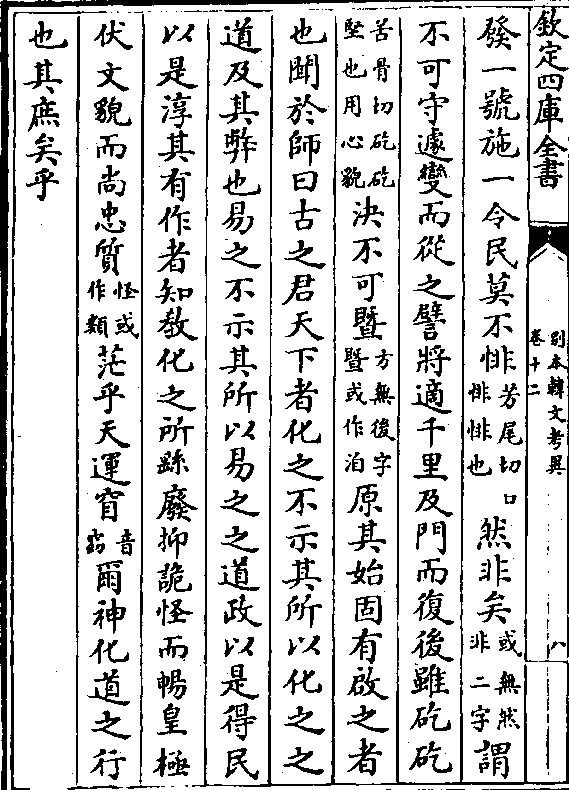 欽定四庫全書
別本韓文考異
卷十二
八
發一號施一令民莫不悱芳尾切口悱悱也然非矣或無然非二字謂
不可守遽變而從之譬將適千里及門而復後雖矻矻
苦骨切矻矻堅也用心貌決不可暨方無後字暨或作洎原其始固有啟之者
也聞於師曰古之君天下者化之不示其所以化之之
道及其弊也易之不示其所以易之之道政以是得民
以是淳其有作者知教化之所跡廢抑詭怪而暢皇極
伏文貌而尚忠質怪或作類茫乎天運窅音窈爾神化道之行
也其庶矣乎